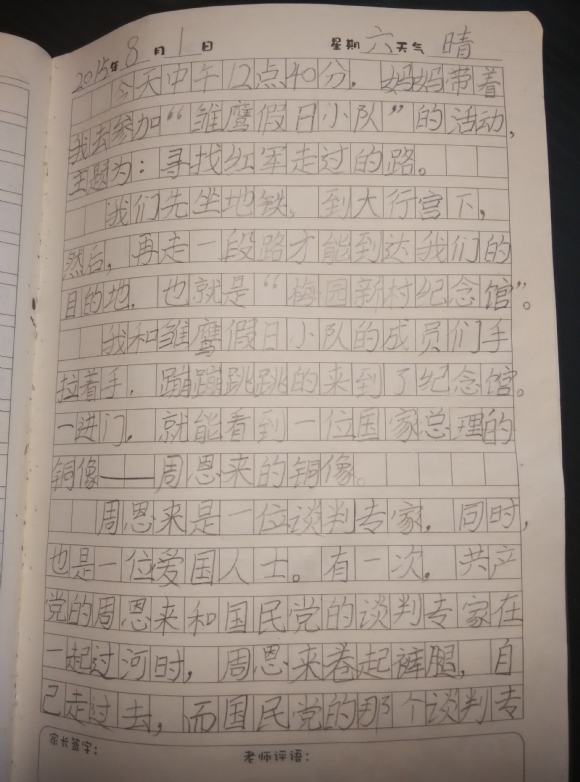 2015年8月1日 星期六天气晴
今天中午12点40分，妈妈带着
我去参加“雏鹰假日小队”的活动，
主题为：寻找红军走过的路。
我们先坐地铁，到大行宫下，
然后，再走一段路才能到达我们的
目的地，也就是“梅园新村纪念馆”。
我和雏鹰假日小队的成员们手
拉着手，蹦蹦跳跳的来到了纪念馆。
一进门，就能看到一位国家总理的
铜像——周恩来的铜像。
周恩来是一位谈判专家，同时，
也是一位爱国人士。有一次，共产
党的周恩来和国民党的谈判专家在
一起过河时，周恩来卷起裤腿，自
己走过去，而国民党的那个谈判专
家长签字：
老师评语：